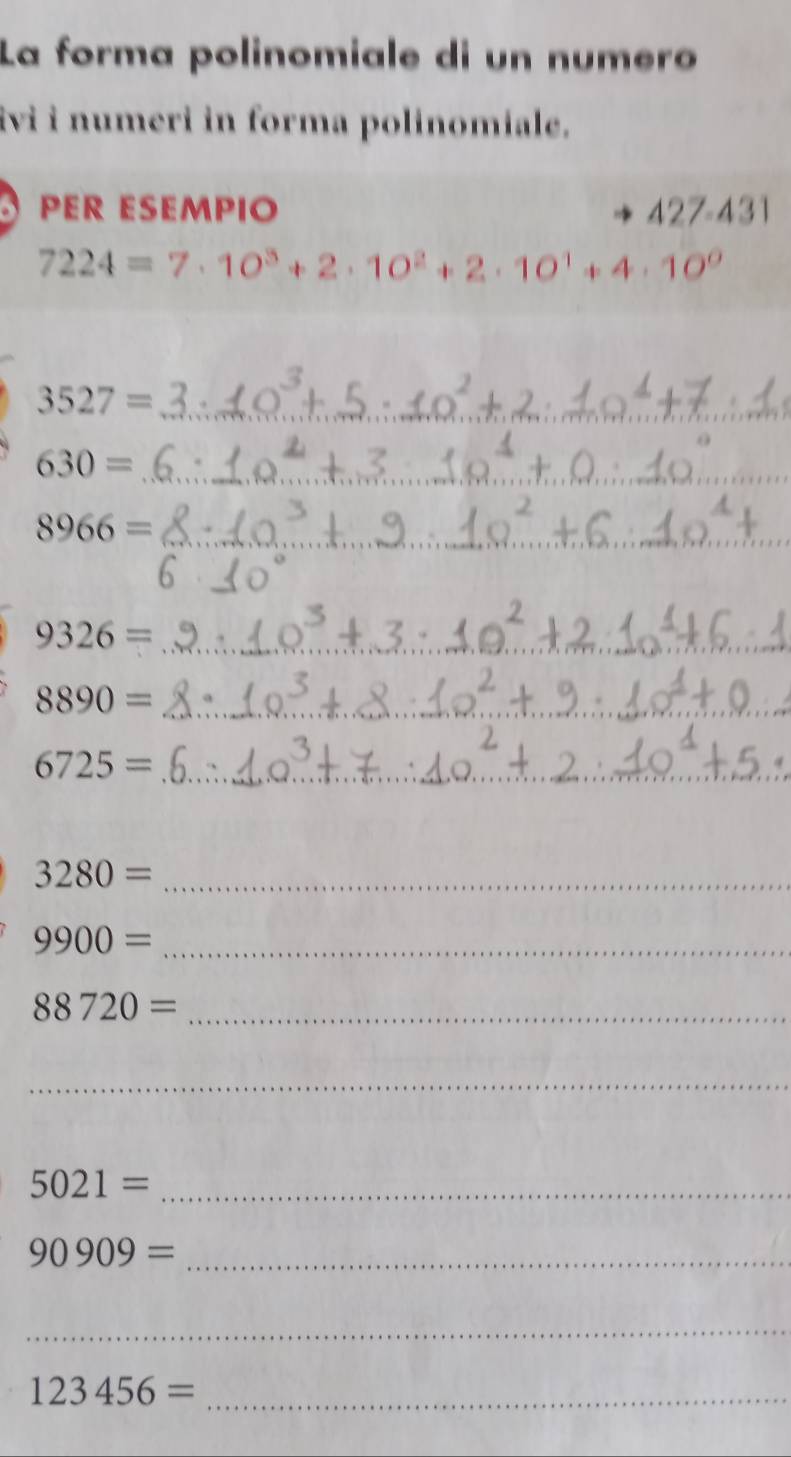 La forma polinomiale di un numero
ivi i numeri in forma polinomiale.
PER ESEMPIO → 427-431
7224 = 7 · 10³ + 2 · 10² + 2 · 10¹ + 4 · 10⁰
3527 = 3 · 10³ + 5 · 10² + 2 · 10¹ + 7 · 1
630 = 6 · 10² + 3 · 10¹ + 0 · 10⁰
8966 = 8 · 10³ + 9 · 10² + 6 · 10¹ +
6 · 10⁰
9326 = 9 · 10³ + 3 · 10² + 2 · 10¹ + 6 · 1
8890 = 8 · 10³ + 8 · 10² + 9 · 10¹ + 0
6725 = 6 · 10³ + 7 · 10² + 2 · 10¹ + 5 ·
3280 =
9900 =
88 720 =
5021 =
90 909 =
123 456 =